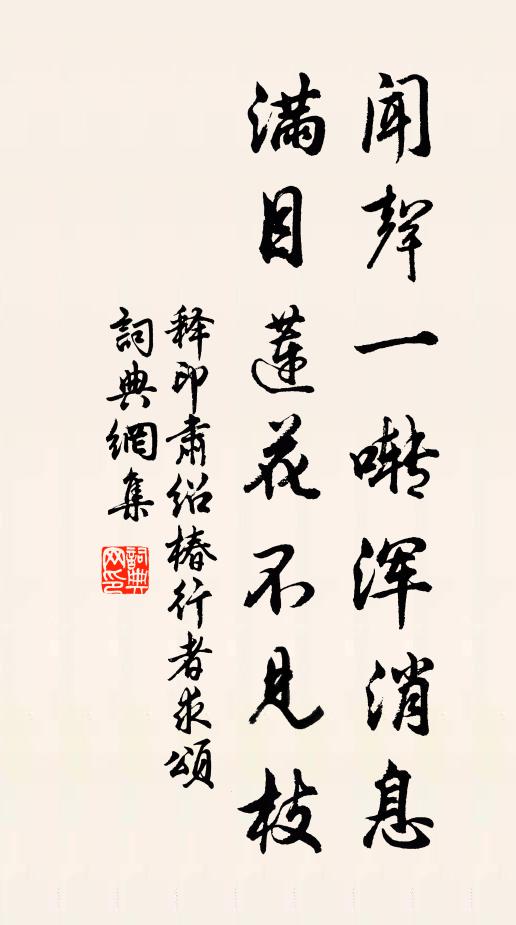 闻聲一啭浑消息
满目莲花不見枝
释印肃绍椿行者求頌
詞典網集
詞典网印